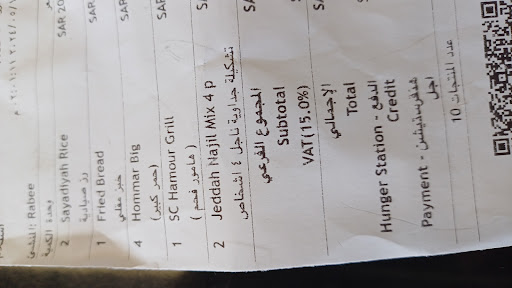 Rabee
2 Sayadiyah Rice SAR 20
رز صيادية
1 Fried Bread SAR
خبز مقلي
4 Hommar Big SAR
(حمر كبير)
1 SC Hamour Grill SAR
(هامور فحم)
2 Jeddah Najil Mix 4 p
تشكيلة جداوية ناجل ٤ اشخاص
المجموع الفرعي
Subtotal
VAT(15.0%)
الإجمالي
Total
Hunger Station - الدفع
Credit
Payment -
اجل
عدد المنتجات 10